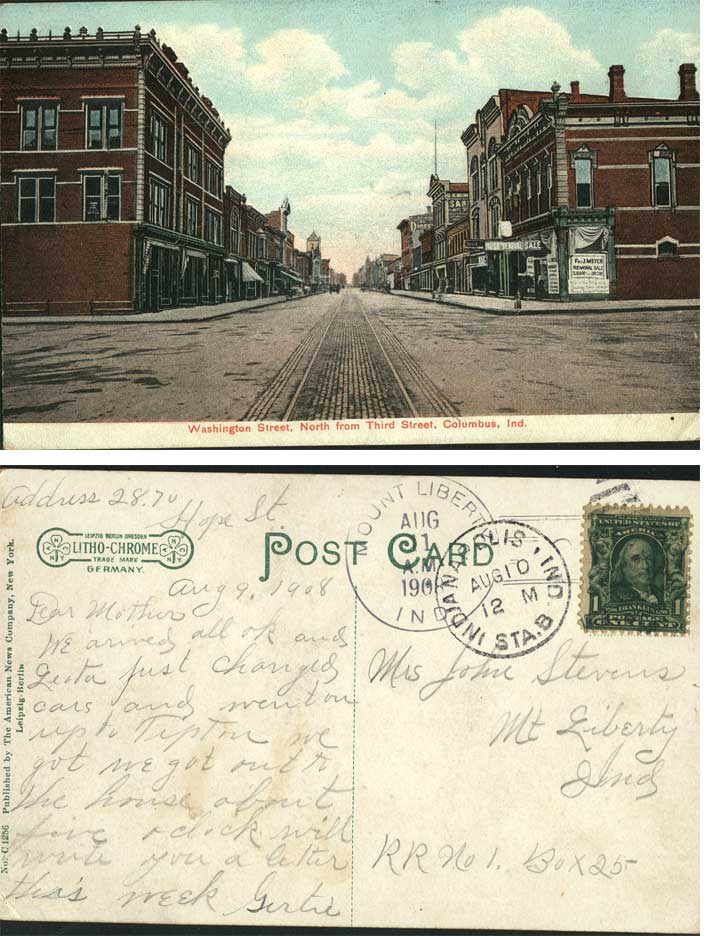 SALE
REMOVAL SALE
Fr. J. MEYER
REMOVAL SALE
Washington Street, North from Third Street, Columbus, Ind.
Address 28.70
Hope St.
LEIPZIG BERLIN DRESDEN
LITHO-CHROME
TRADE MARK
GERMANY.
POST CARD
MOUNT LIBERTY
AUG
11
A.M.
1908
IND
INDIANAPOLIS, IND.
AUG 10
12 M
STA. B
UNITED STATES OF
AMERICA
1 FRANKLIN 1
POSTAGE
ONE CENT
Aug 9, 1908
Dear Mother
We arived all ok and
Leota just changed
cars and went on
up to Tipton we
got we got out to
the house about
five oclock will
write you a letter
this week Gertie
Mrs John Stevens.
Mt Liberty
Ind
RR No 1. Box 25
No. C 1256 Published by The American News Company, New York.
Leipzig-Berlin